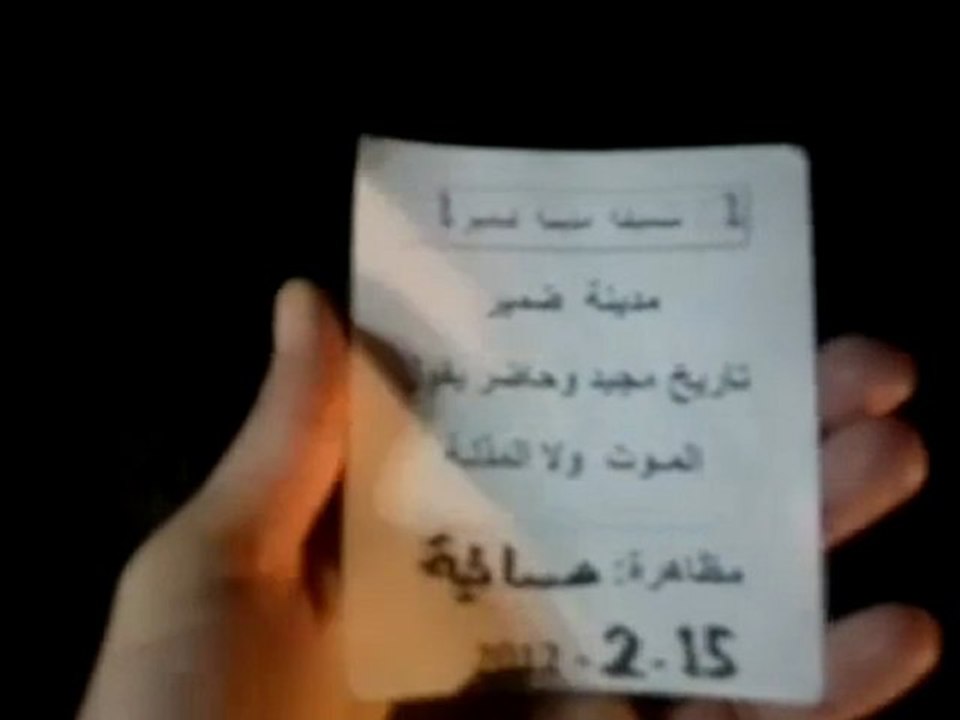 مدينة ضمير
تاريخ مجيد وحاضر يقول
الموت ولا المذلة
مظاهرة: مسائية
2012 - 2 - 15